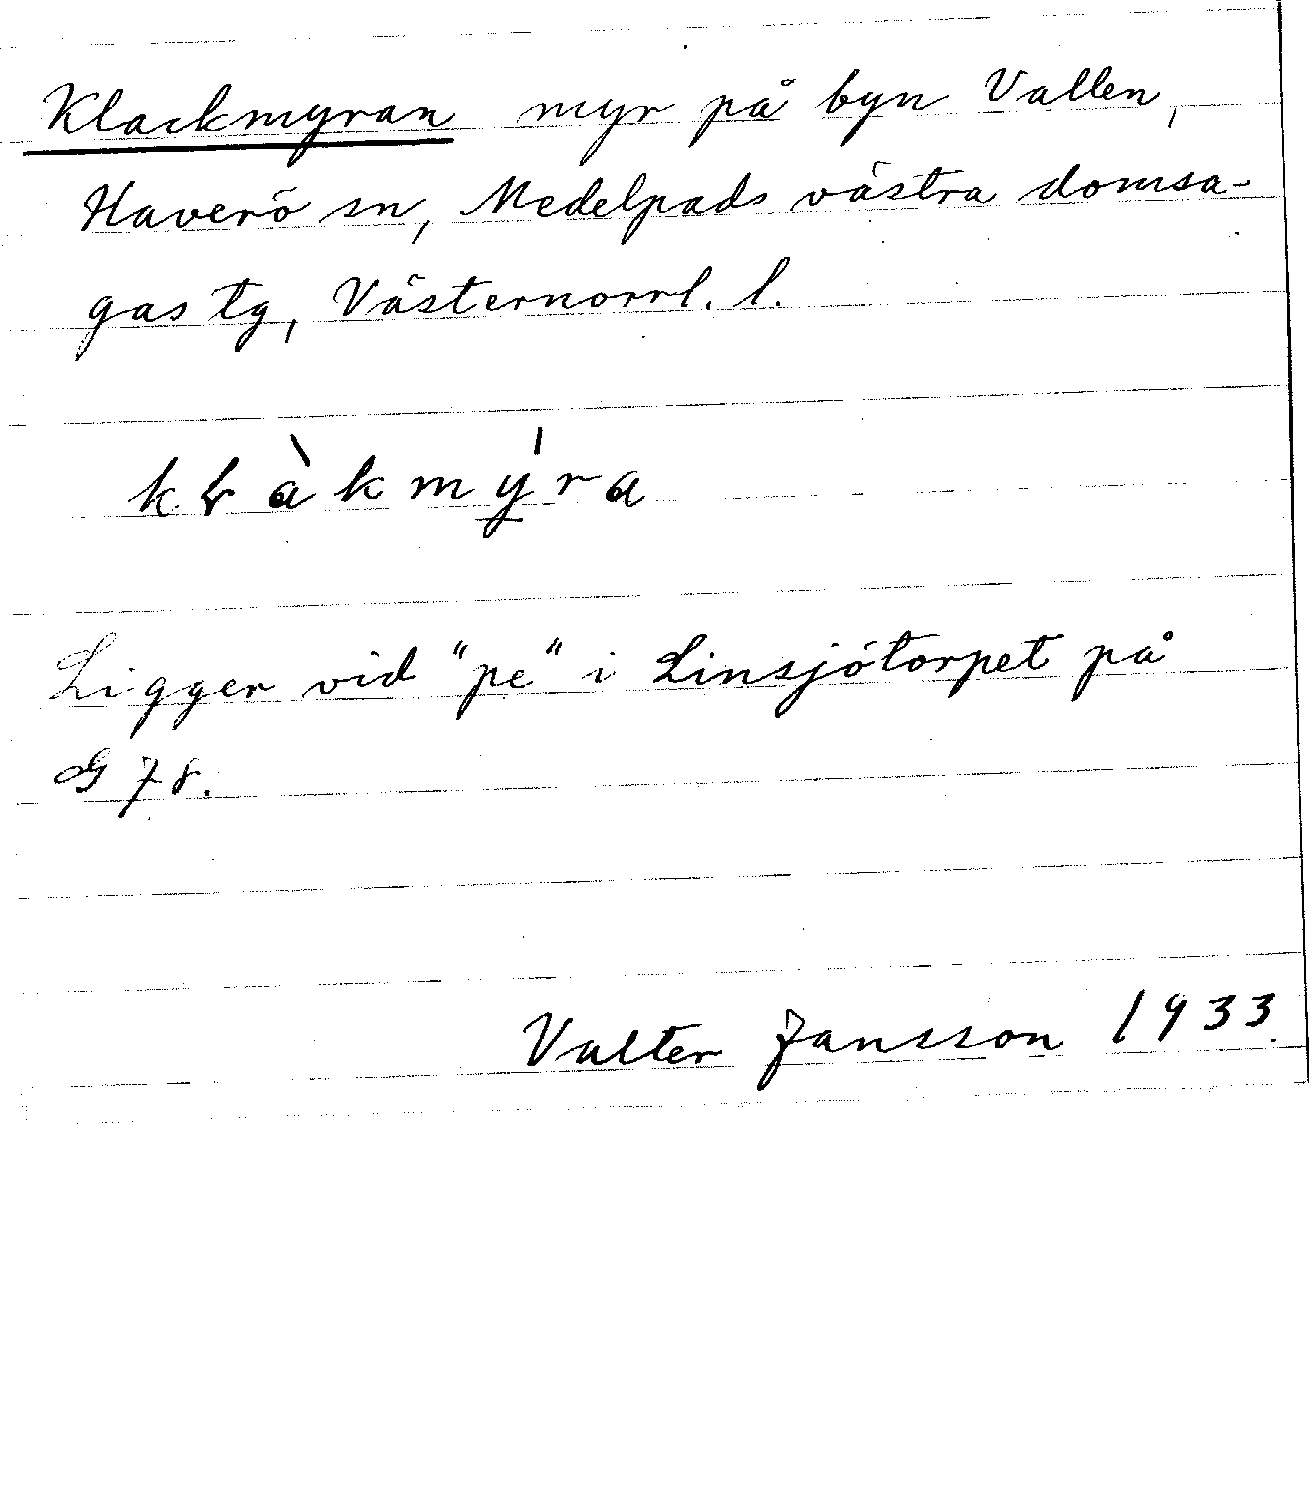 Klackmyran myr på byn Vallen,
Haverö sn, Medelpads västra domsa-
gas tg, Västernorrl. l.
kɽàkmý̱ra
Ligger vid "pe" i Linsjötorpet på
G 78.
Valter Jansson 1933.